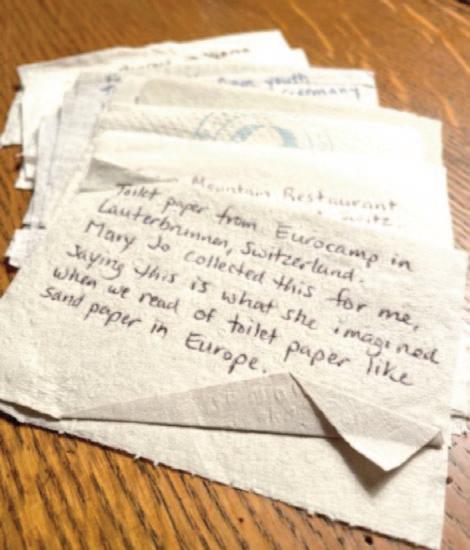 youth
Germany
Mountain Restaurant
Toilet paper from Eurocamp in
Lauterbrunnen, Switzerland.
Mary Jo collected this for me,
saying this is what she imagined
when we read of toilet paper like
sand paper in Europe.